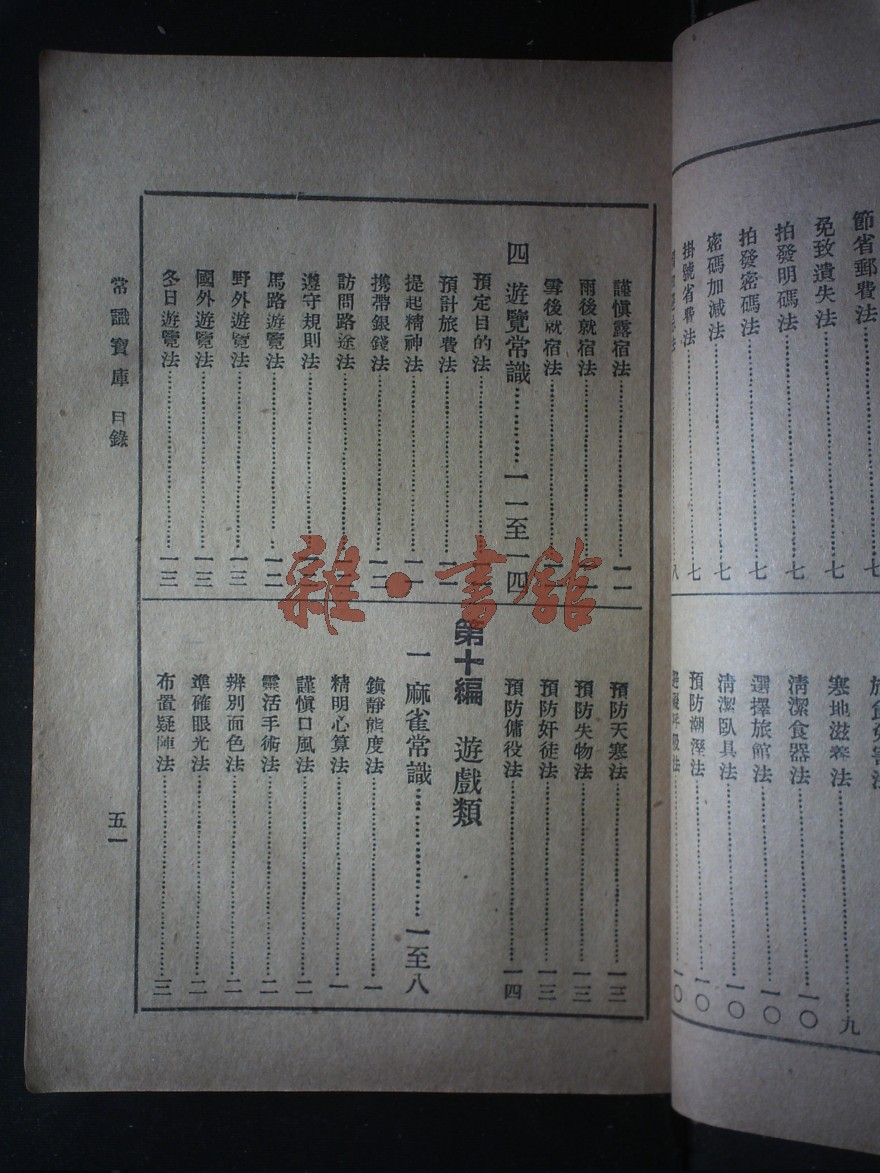 節省郵費法⋯⋯七
免致遺失法⋯⋯七
拍發明碼法⋯⋯七
拍發密碼法⋯⋯七
密碼加減法⋯⋯七
掛號省費法⋯⋯七
八
寒地滋養法⋯⋯九
清潔食器法⋯⋯一〇
選擇旅館法⋯⋯一〇
清潔臥具法⋯⋯一〇
預防潮溼法⋯⋯一〇
一〇
謹慎露宿法⋯⋯一一
雨後就宿法⋯⋯一一
雪後就宿法⋯⋯
四 遊覽常識⋯⋯一一至一四
預定目的法⋯⋯
預計旅費法⋯⋯一一
提起精神法⋯⋯一一
携帶銀錢法⋯⋯一二
訪問路途法⋯⋯
遵守規則法⋯⋯
馬路遊覽法⋯⋯一二
野外遊覽法⋯⋯一三
國外遊覽法⋯⋯一三
冬日遊覽法⋯⋯一三
預防天寒法⋯⋯一三
預防失物法⋯⋯一三
預防奸徒法⋯⋯一三
預防傭役法⋯⋯一四
第十編 遊戲類
一 麻雀常識⋯⋯一至八
鎮靜態度法⋯⋯一
精明心算法⋯⋯一
謹慎口風法⋯⋯二
靈活手術法⋯⋯二
辨別面色法⋯⋯二
準確眼光法⋯⋯二
布置疑陣法⋯⋯三
常識寶庫 目錄
五一
雜·書館